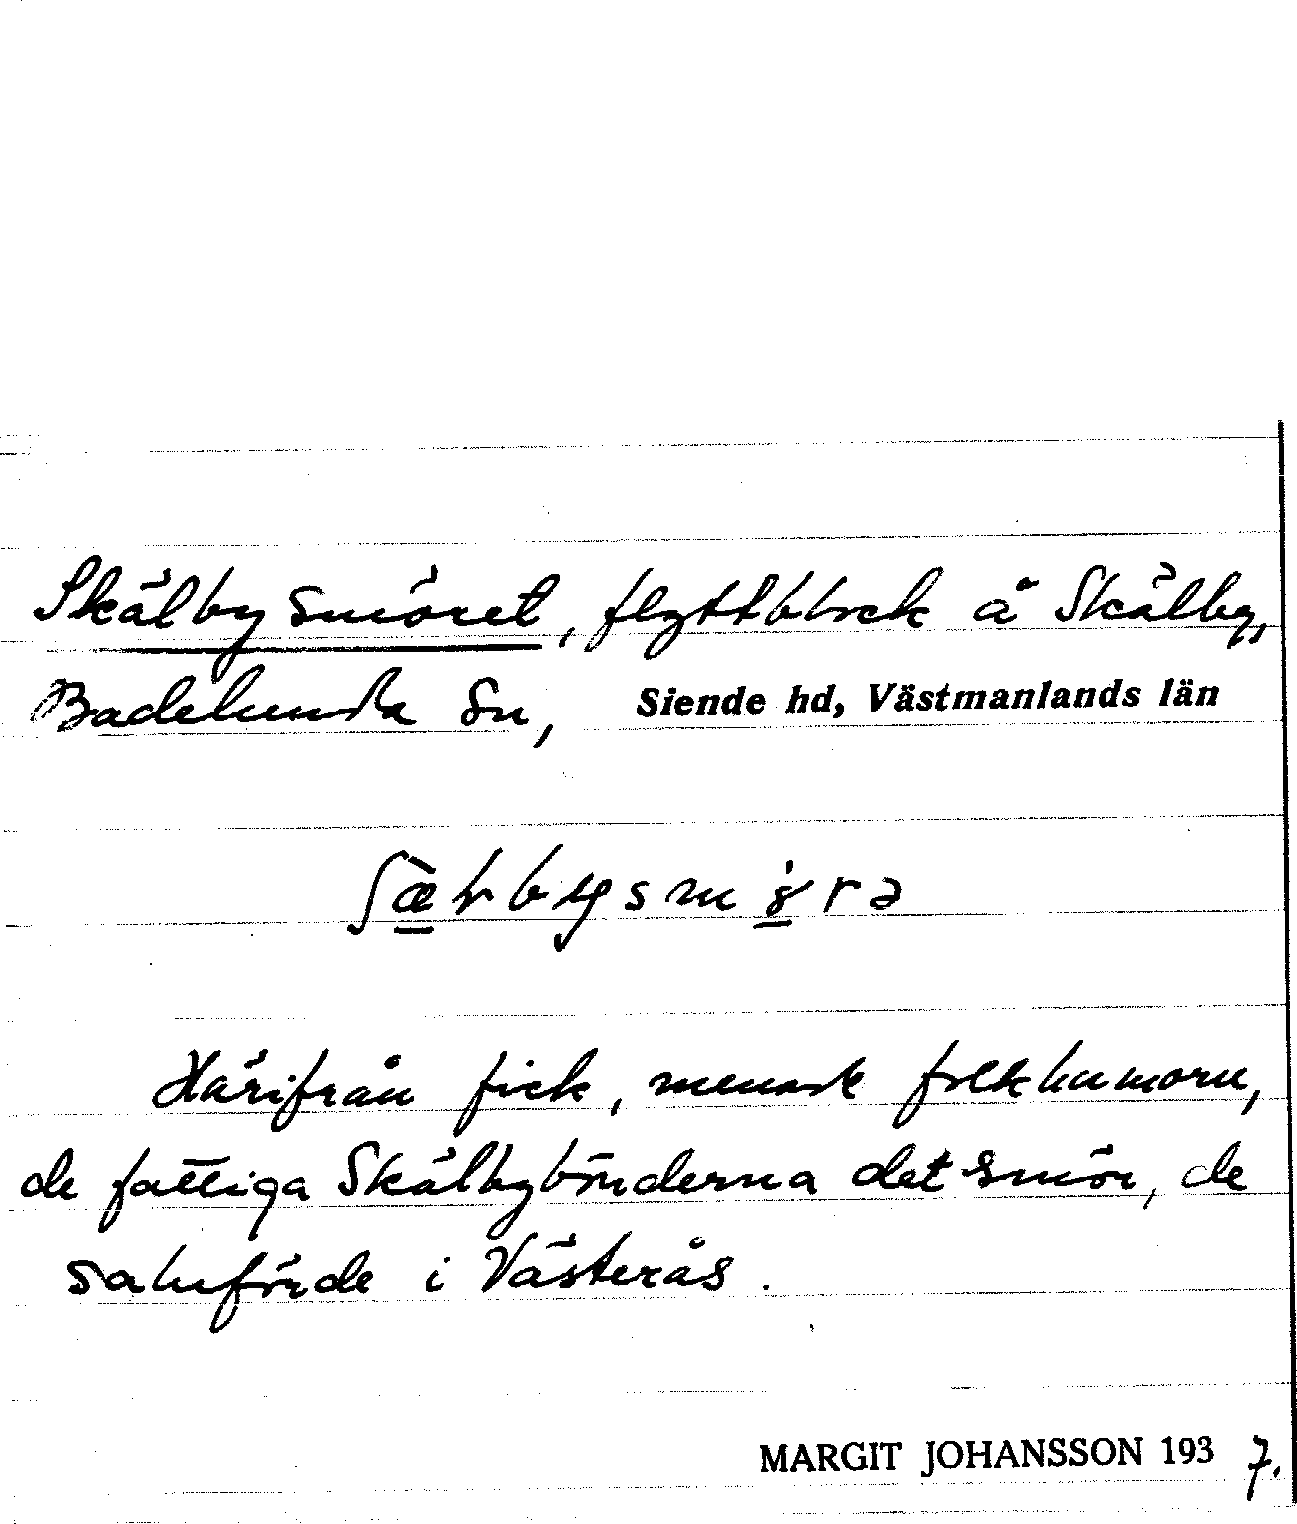 Skälbysmöret, flyttblock å Skälby,
Badelunda sn, Siende hd, Västmanlands län
Härifrån fick, menade folkhumorn,
de fattiga Skälbybönderna det smör, de
saluförde i Västerås.
MARGIT JOHANSSON 1937.